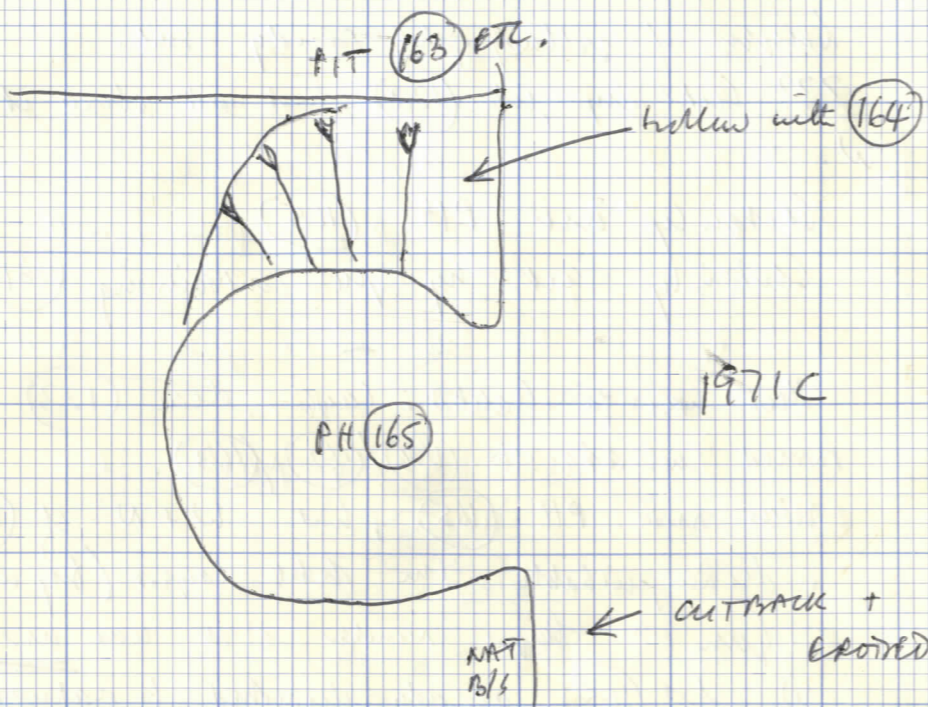 PIT 163 ETC.
hollow with 164
1971 C
PH 165
CUTBACK +
ERODED
NAT
B/S